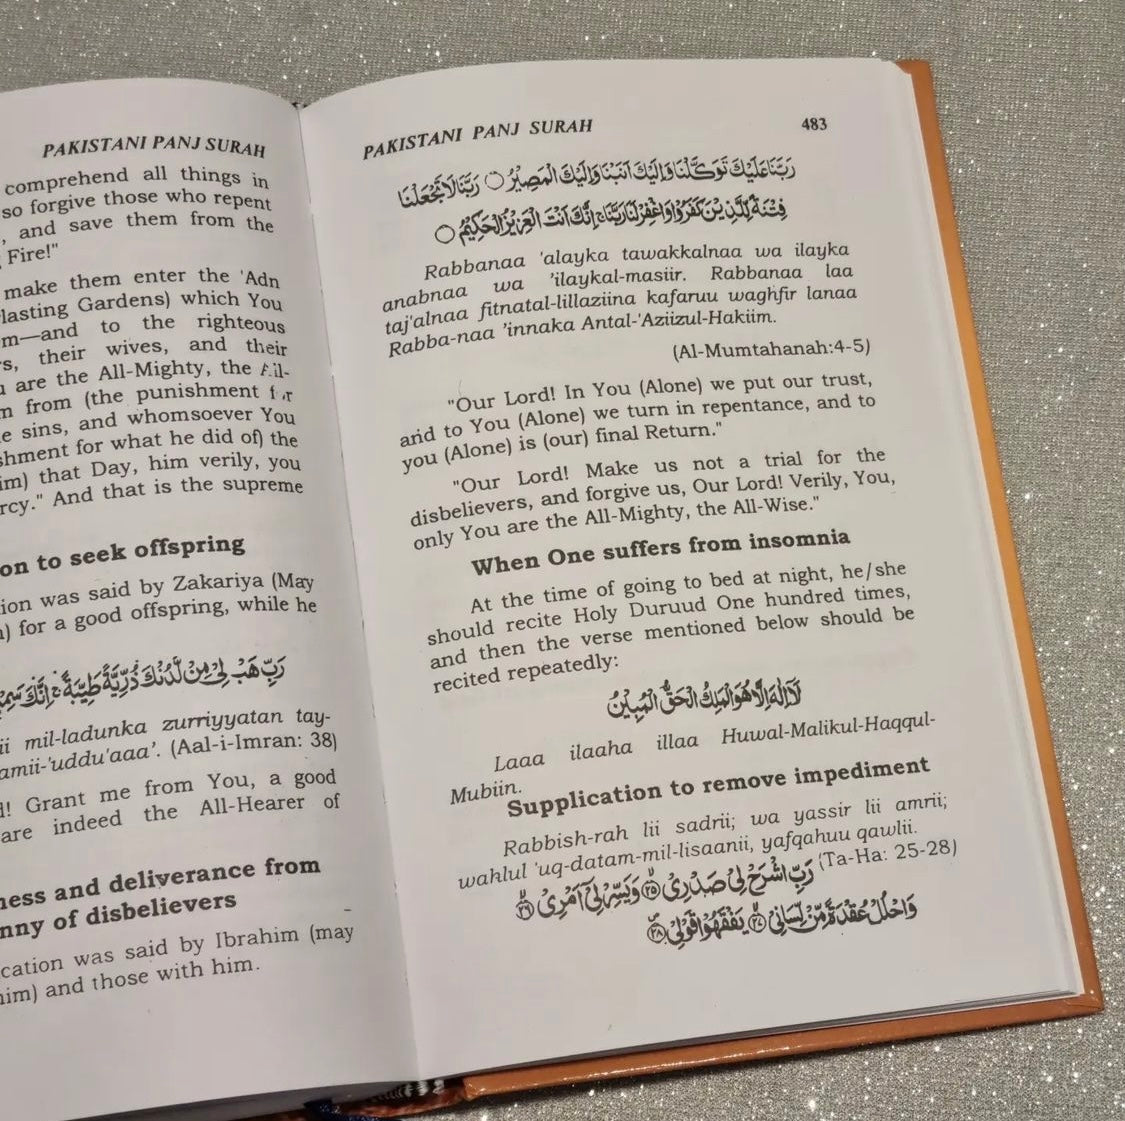 PAKISTANI PANJ SURAH
comprehend all things in
so forgive those who repent
, and save them from the
Fire!"
make them enter the 'Adn
lasting Gardens) which You
m—and to the righteous
s, their wives, and their
are the All-Mighty, the All-
m from (the punishment for
e sins, and whomsoever You
shment for what he did of) the
im) that Day, him verily, you
rcy." And that is the supreme
on to seek offspring
ion was said by Zakariya (May
) for a good offspring, while he
رَبِّ هَبْ لِیْ مِنْ لَّدُنْكَ ذُرِّیَّةً طَیِّبَةً ۚ اِنَّكَ
ii mil-ladunka zurriyyatan tay-
amii-'uddu'aaa'. (Aal-i-Imran: 38)
d! Grant me from You, a good
are indeed the All-Hearer of
ness and deliverance from
nny of disbelievers
cation was said by Ibrahim (may
him) and those with him.
PAKISTANI PANJ SURAH 483
رَبَّنَا عَلَیْكَ تَوَكَّلْنَا وَاِلَیْكَ اَنَبْنَا وَاِلَیْكَ الْمَصِیْرُ ○ رَبَّنَا لَا تَجْعَلْنَا
فِتْنَةً لِّلَّذِیْنَ كَفَرُوْا وَاغْفِرْ لَنَا رَبَّنَا ۚ اِنَّكَ اَنْتَ الْعَزِیْزُ الْحَكِیْمُ ○
Rabbanaa 'alayka tawakkalnaa wa ilayka
anabnaa wa 'ilaykal-masiir. Rabbanaa laa
taj'alnaa fitnatal-lillaziina kafaruu waghfir lanaa
Rabba-naa 'innaka Antal-'Aziizul-Hakiim.
(Al-Mumtahanah:4-5)
"Our Lord! In You (Alone) we put our trust,
and to You (Alone) we turn in repentance, and to
you (Alone) is (our) final Return."
"Our Lord! Make us not a trial for the
disbelievers, and forgive us, Our Lord! Verily, You,
only You are the All-Mighty, the All-Wise."
When One suffers from insomnia
At the time of going to bed at night, he/she
should recite Holy Duruud One hundred times,
and then the verse mentioned below should be
recited repeatedly:
لَا اِلٰهَ اِلَّا هُوَ الْمَلِكُ الْحَقُّ الْمُبِیْنُ
Laaa ilaaha illaa Huwal-Malikul-Haqqul-
Mubiin.
Supplication to remove impediment
Rabbish-rah lii sadrii; wa yassir lii amrii;
wahlul 'uq-datam-mil-lisaanii, yafqahuu qawlii.
(Ta-Ha: 25-28)
رَبِّ اشْرَحْ لِیْ صَدْرِیْ ۝٢٥ وَیَسِّرْ لِیْۤ اَمْرِیْ ۝٢٦
وَاحْلُلْ عُقْدَةً مِّنْ لِّسَانِیْ ۝٢٧ یَفْقَهُوْا قَوْلِیْ ۝٢٨